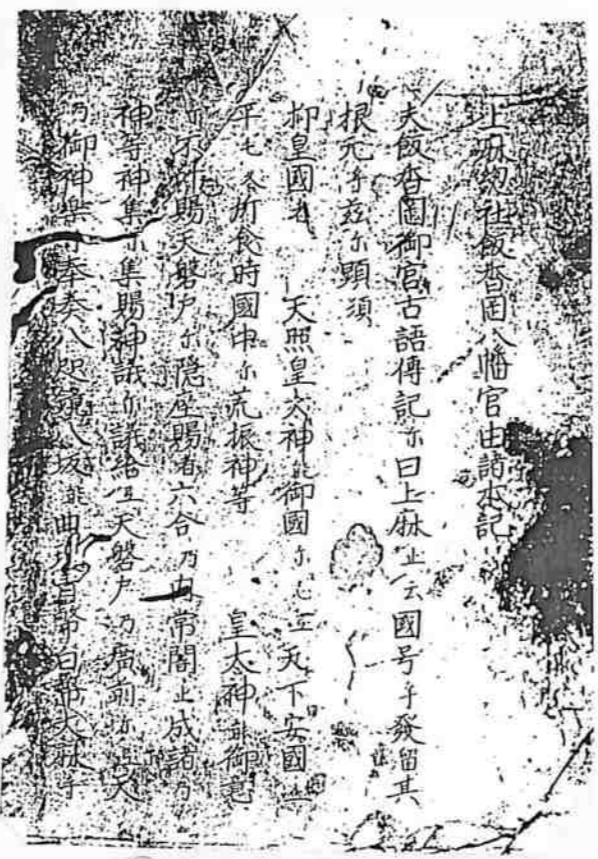 上麻惣社飯香岡八幡宮由諸本記
夫飯香岡御宮古語傳記尓曰上麻止云國号乎發留其
根元乎茲尓顕須
抑皇國者 天照皇大神能御國尓之弖天下安國止
平七久所食時國中尓荒振神等 皇太神能御意
尓不所賜天磐戸尓隠座賜者六合乃内常闇止成諸乃
神等神集尓集賜神議尓議給弖天磐戸乃廣前尓弖大
乃御神樂奉奏八咫鏡八坂能曲青幣白幣大麻乎